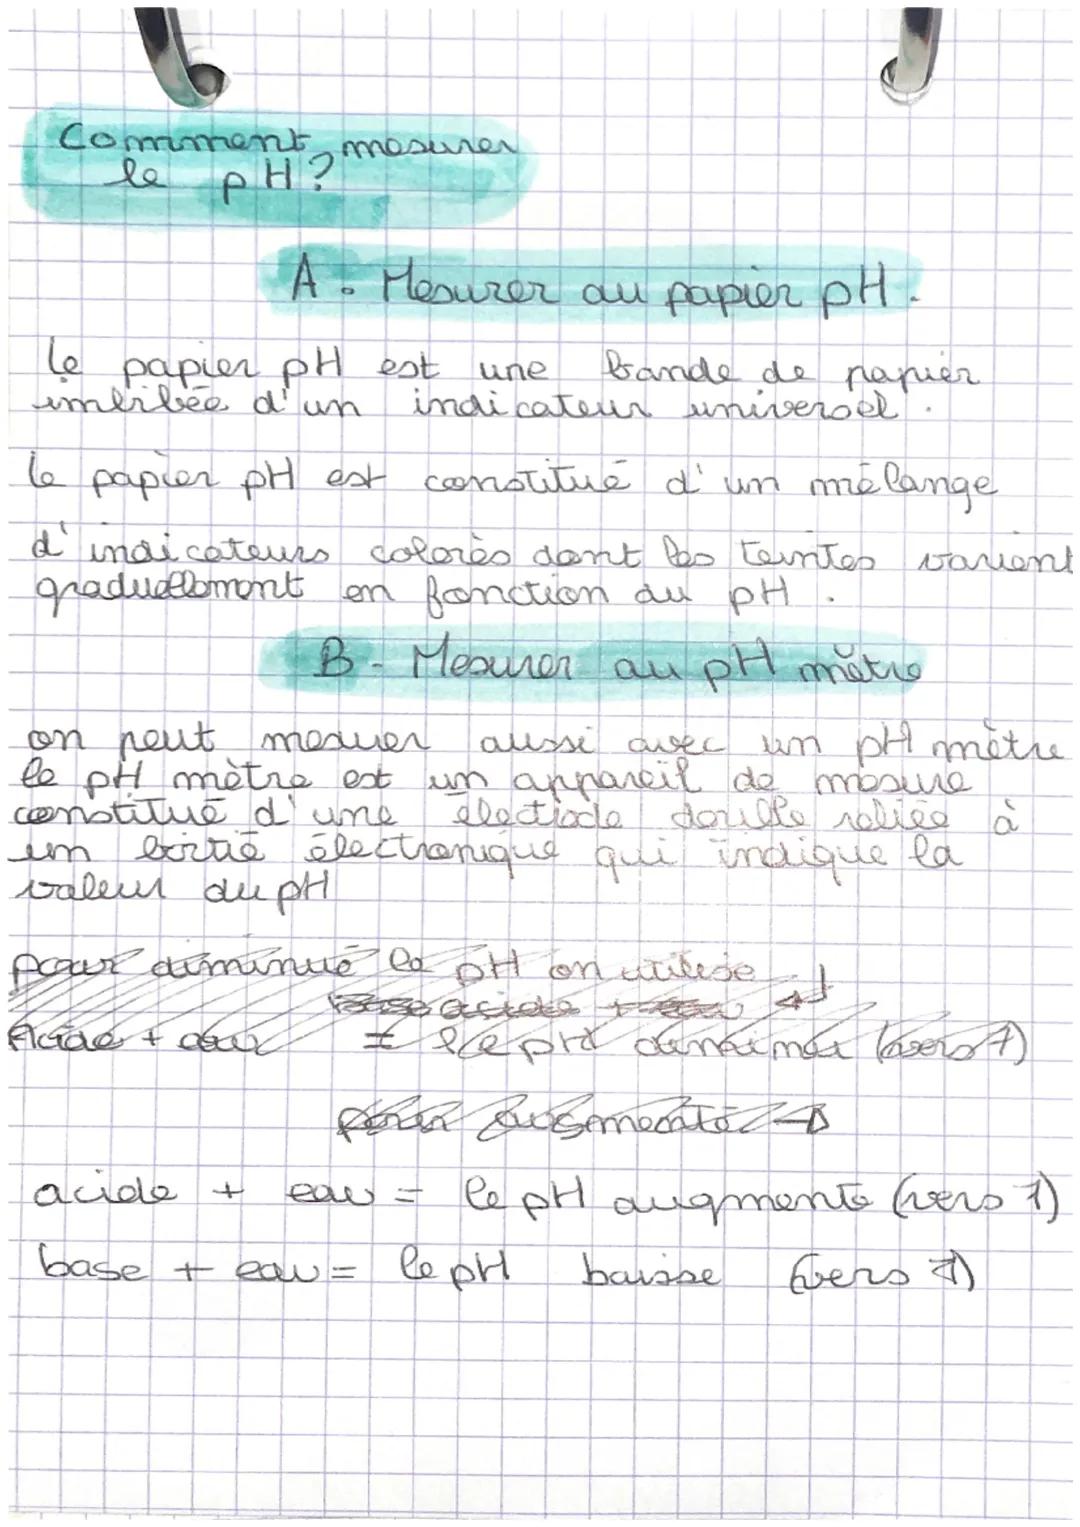 Comment mesurer
le pH ?
A. Mesurer au papier pH.
le papier pH est une bande de papier
imbibée d'un indicateur universel.
le papier pH est constitué d'un mélange
d'indicateurs colorés dont les teintes varient
graduellement en fonction du pH.
B - Mesurer au pH mètre
on peut mesuer aussi avec un pH mètre
le pH mètre est un appareil de mesure
constitué d'une électrode double reliée à
un boitié électronique qui indique la
valeur du pH
pour diminué le pH on utilise
acide +
Acide + eau = le pH diminue (vers 7)
pour augmenté →
acide + eau = le pH augmente (vers 7)
base + eau = le pH baisse (vers 7)